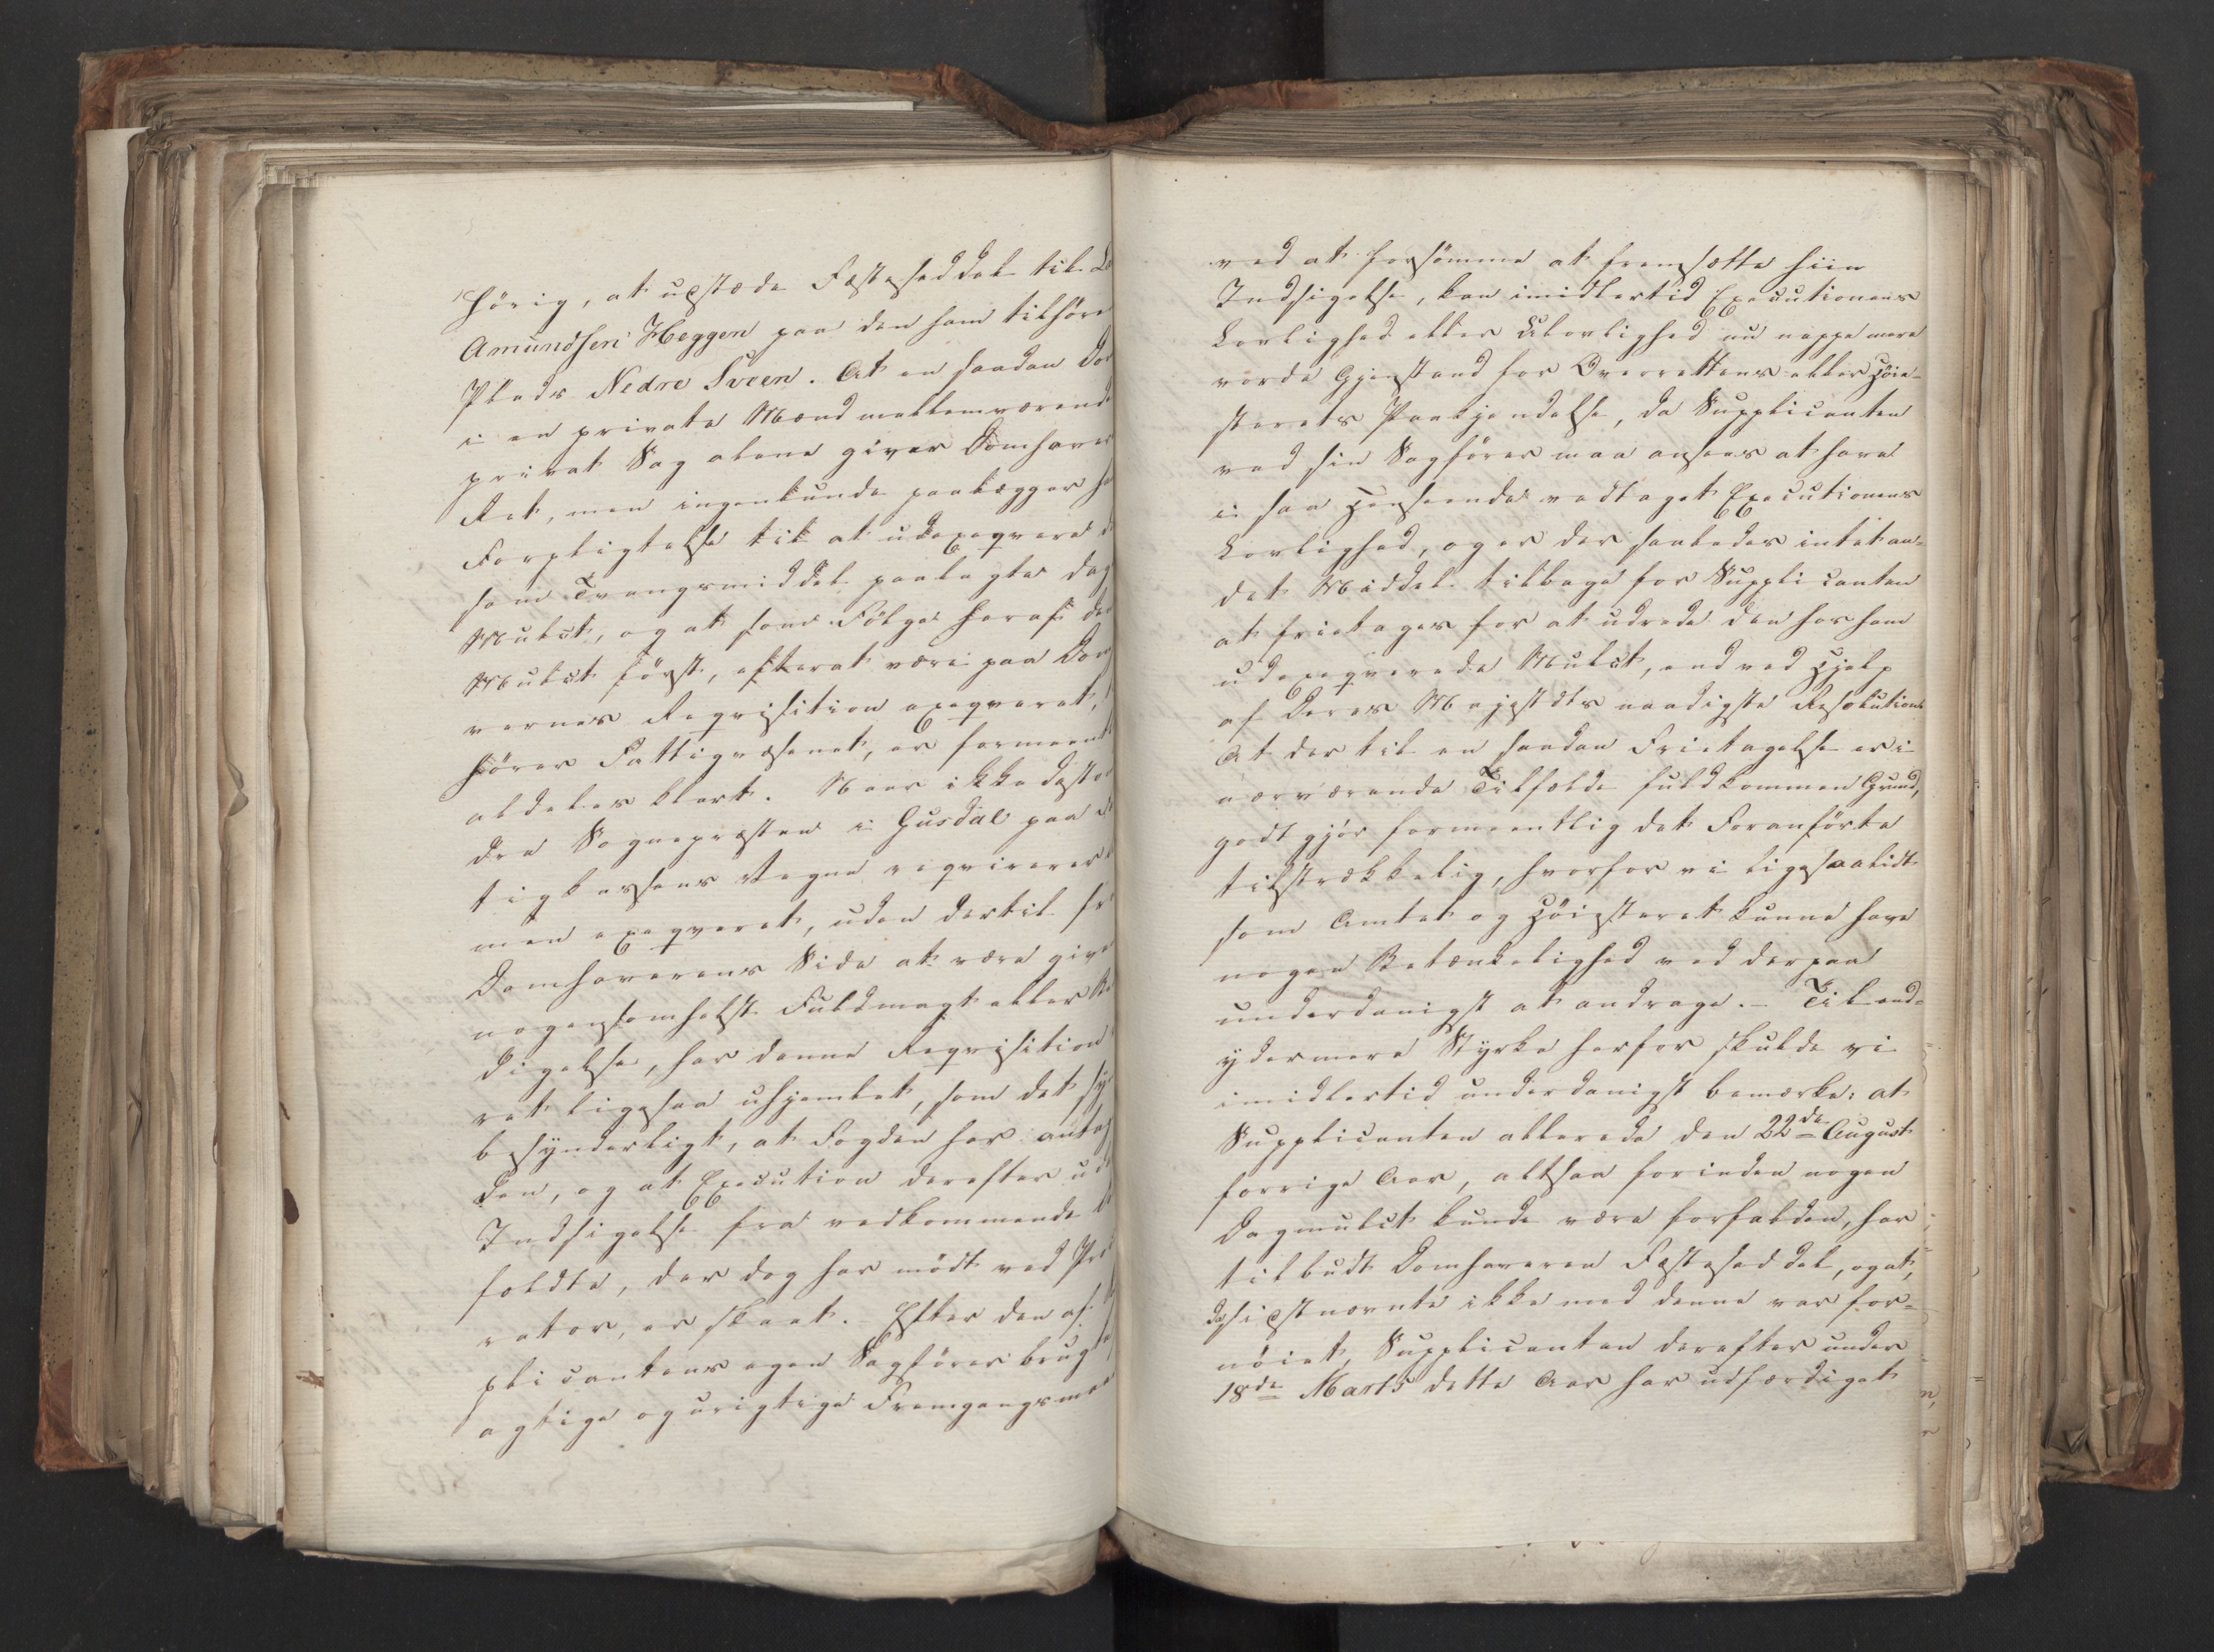 hörig, at udstæde Fæstesseddel til
Amundsen Heggen paa den ham tilhøre
Plads Nedre Sveen. At en saadan Do
i en private Mænd mellemværende
privat Sag alene giver Domhaver
Ret, men ingenlunde paalægger ha
Forpligtelse til at udexeqvere
som Tvangsmiddel paalagte Dag
Mulct, og at som Følge heraf den
Mulct först, efterat være paa Dom
vernes Reqvisition exeqveret,
hörer Fattigvæsenet, er formeent
aldeles klart. Naar ikke desto
dre Sognepræsten i Gusdal paa
tigkassens Vegne reqvirerer
men exeqveret, uden dertil fr
Domhaverens Side at være give
nogensomhelst Fuldmagt eller Be
digelse, har denne Reqvisition
ret ligesaa uhjemlet, som det sy
besynderligt, at Fogden har antag
den, og at Execution derefter ud
Indsigelse fra vedkommende
foldte, der dog har mödt ved Pro
rator, er skeet. Efter den af
plicantens egen Sagförer brugt
agtige og urigtige Fremgangsmaa
ved at forsömme at fremsætte hiin
Indsigelse, kan imidlertid Executionens
Lovlighed eller Ulovlighed nu neppe mere
vorde Gjenstand for Overrettens eller Höie-
sterets Paakjendelse, da Supplicanten
ved sin Sagförer maa ansees at have
i saa Henseende vedtaget Executionens
Lovlighed, og er der saaledes intet an-
det Middel tilbage for Supplicanten
at fritages for at udrede den hos ham
udexeqverede Mulct, end ved Hjelp
af Deres Majestæts naadigste Resolution
At der til en saadan Fritagelse er i
nærværende Tilfælde fuldkommen Grund,
godtgjör formeentlig det Foranförte
tilstrækkelig, hvorfor vi ligesaalidt
som Amtet og Höiesteret kunne have
nogen Betænkelighed ved derpaa
underdanigst at andrage. – Til end-
ydermere Styrke herfor skulde vi
imidlertid underdanigst bemærke: at
Supplicanten allerede den 22de August
forrige Aar, altsaa forinden nogen
Dagmulct kunde være forfalden, har
tilbudt Domhaveren Fæsteseddel, og at,
da sidstnævnte ikke med denne var for-
nöiet, Supplicanten derefter under
18de Marts dette Aar har udfærdiget